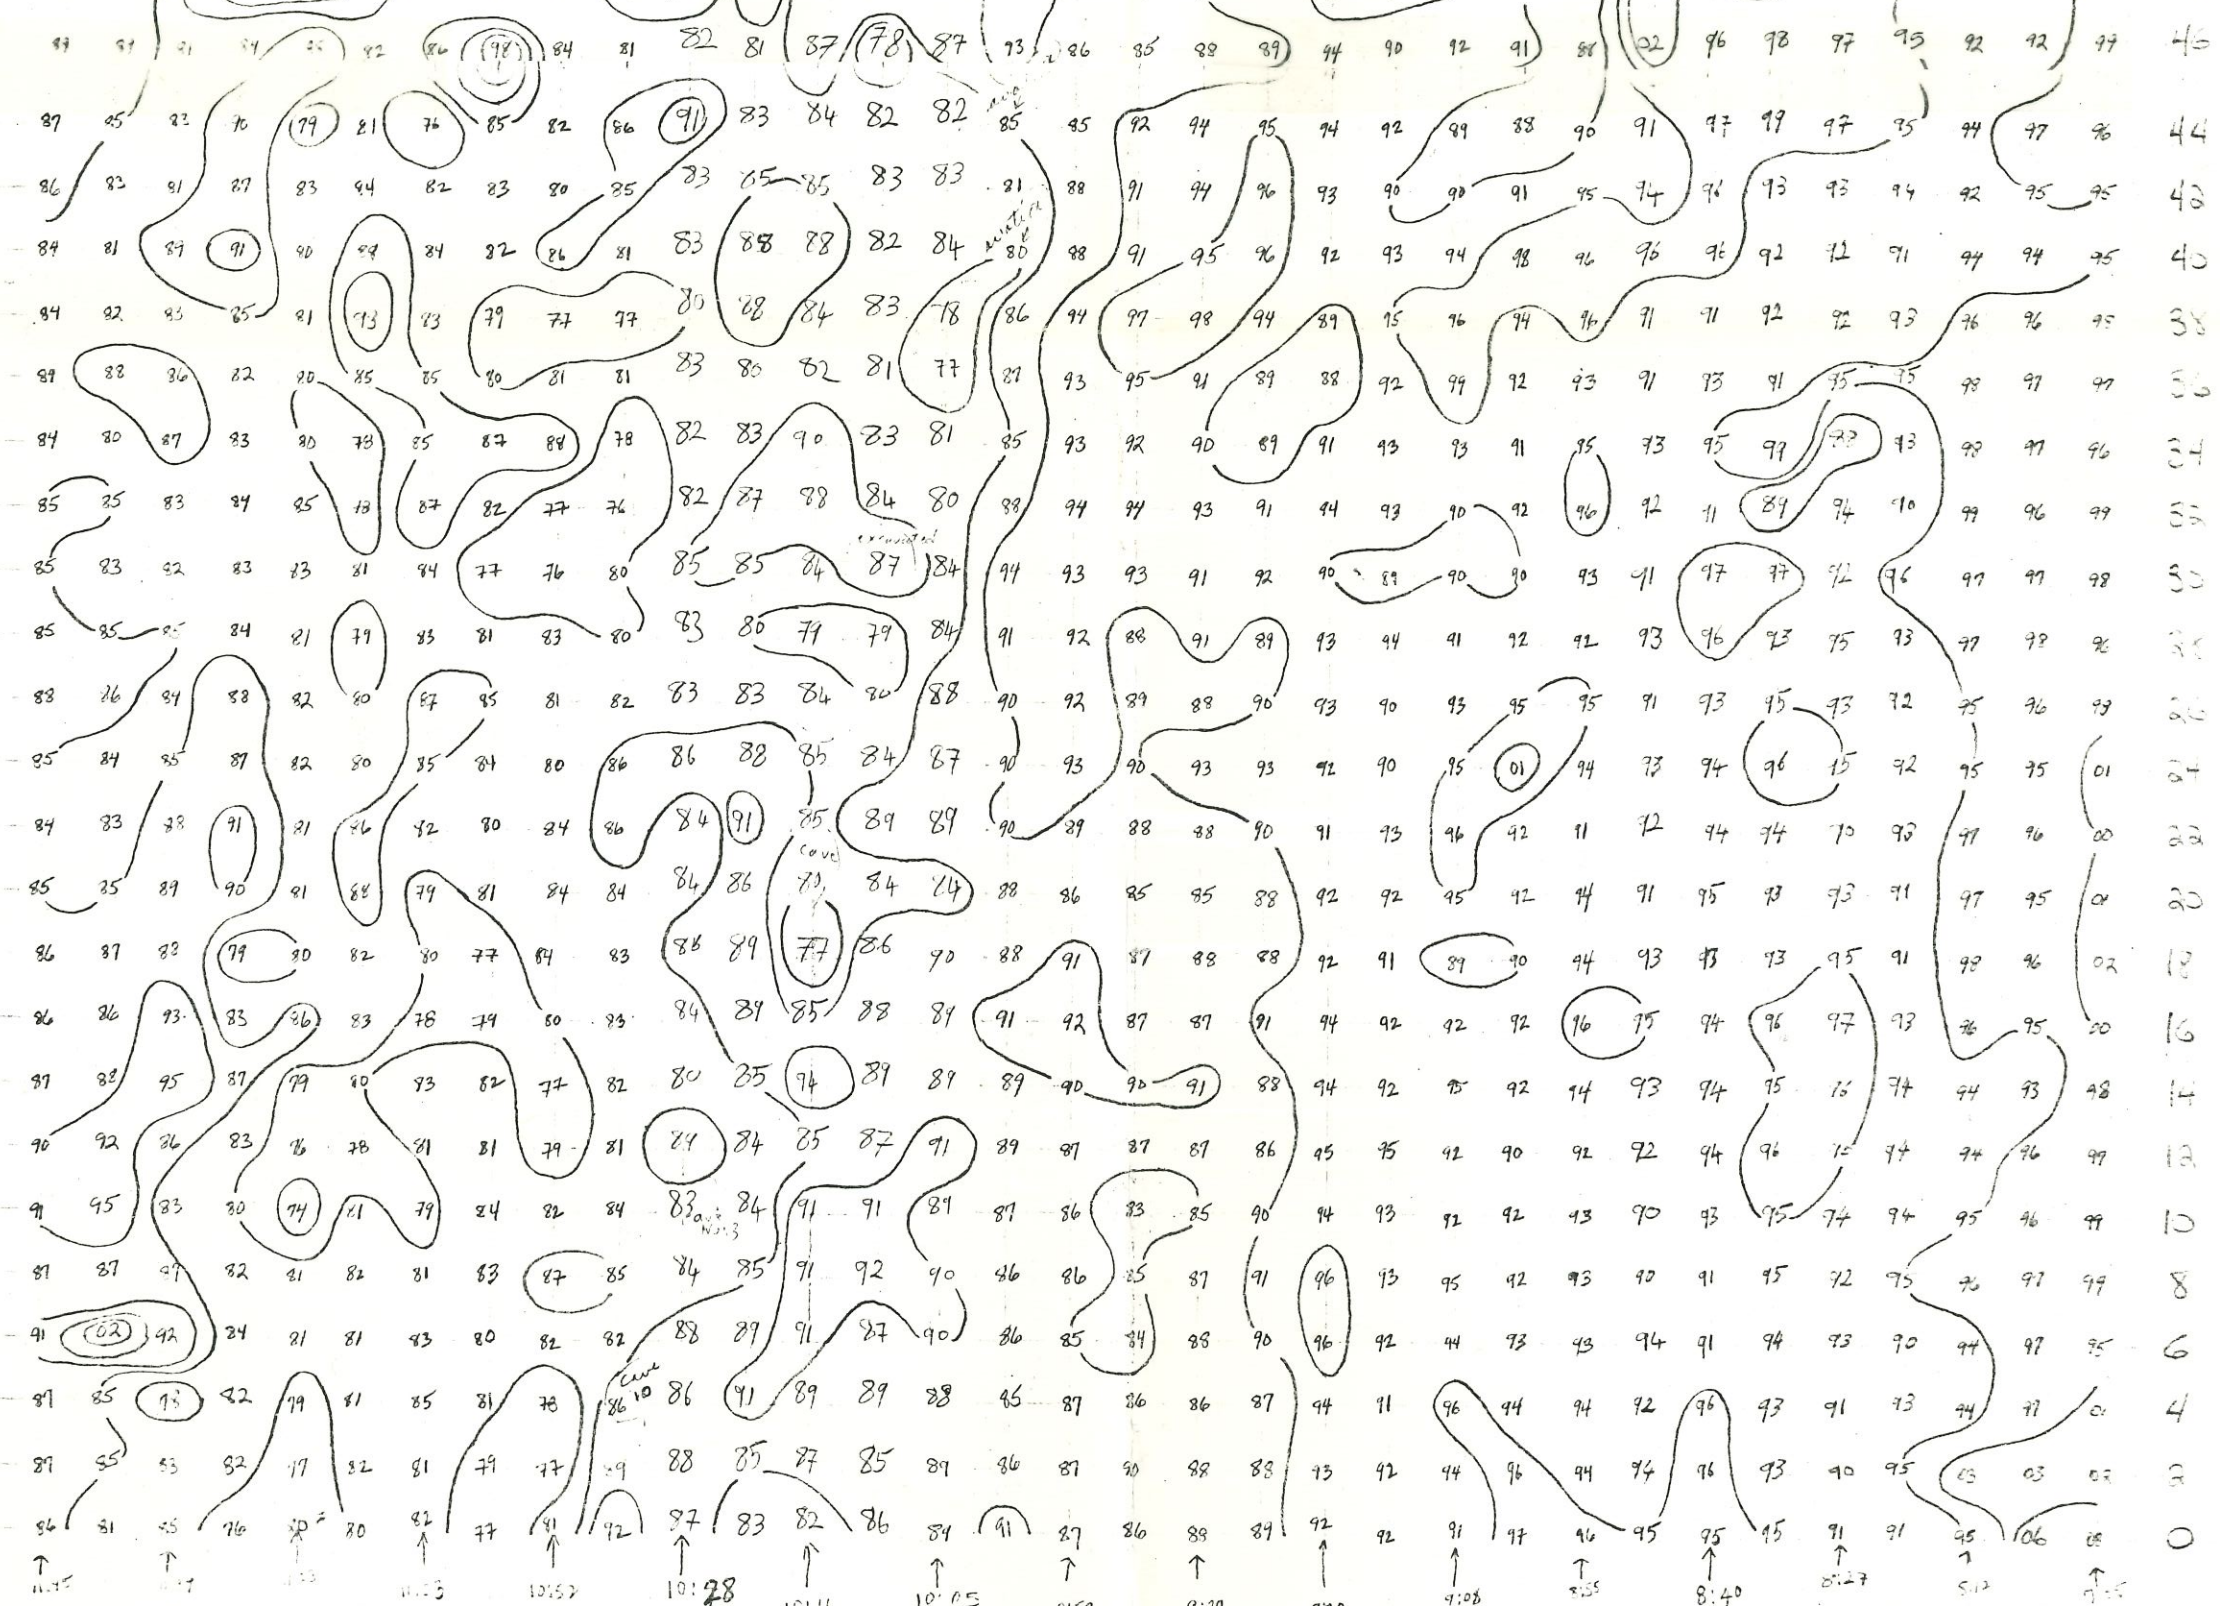 89 89 91 84 82 86 98 84 81 82 81 87 78 87 93 86 85 88 89 94 90 92 91 88 02 96 98 97 95 92 92 99 46
87 85 83 90 79 81 76 85 82 86 91 83 84 82 82 85 85 92 94 95 94 92 89 88 90 91 97 99 97 95 94 97 96 44
86 83 81 87 83 84 82 83 80 85 83 85 85 83 83 81 88 91 94 96 93 90 90 91 95 94 96 93 93 94 92 95 95 42
84 81 89 91 90 89 84 82 86 81 83 88 88 82 84 80 88 91 95 96 92 93 94 98 96 96 96 92 92 91 94 94 95 40
84 82 83 85 81 93 83 79 77 77 80 88 84 83 78 86 94 97 98 94 89 95 96 94 96 91 91 92 92 93 96 96 95 38
89 88 86 82 80 85 85 80 81 81 83 80 82 81 77 87 93 95 91 89 88 92 99 92 93 91 93 91 95 95 98 97 97 36
84 80 87 83 80 78 85 87 88 78 82 83 90 83 81 85 93 92 90 89 91 93 93 91 95 93 95 97 88 93 98 97 96 34
85 85 83 84 85 78 87 82 77 76 82 87 88 84 80 88 94 94 93 91 94 93 90 92 96 92 91 89 94 90 99 96 99 32
excavated
85 83 82 83 83 81 84 77 76 80 85 85 84 87 84 94 93 93 91 92 90 89 90 90 93 91 97 97 92 96 97 97 98 30
85 85 85 84 81 79 83 81 83 80 83 80 79 79 84 91 92 88 91 89 93 94 91 92 92 93 96 93 95 93 97 98 96 28
88 86 84 88 82 80 87 85 81 82 83 83 84 80 88 90 92 89 88 90 93 90 93 95 95 91 93 95 93 92 95 96 98 26
85 84 85 87 82 80 85 84 80 86 86 88 85 84 87 90 93 90 93 93 92 90 95 01 94 93 94 96 95 92 95 95 01 24
84 83 88 91 81 86 82 80 84 86 84 91 85 89 89 90 89 88 88 90 91 93 96 92 91 92 94 94 90 93 97 96 00 22
85 85 89 90 81 88 79 81 84 84 84 86 80 84 84 88 86 85 85 88 92 92 95 92 94 91 95 93 93 91 97 95 01 20
86 87 88 79 80 82 80 77 84 83 86 89 77 86 90 88 91 87 88 88 92 91 89 90 94 93 93 93 95 91 98 96 02 18
86 86 93 83 86 83 78 79 80 83 84 89 85 88 89 91 92 87 87 91 94 92 92 92 96 95 94 96 97 93 96 95 00 16
87 88 95 87 79 80 83 82 77 82 80 85 94 89 89 89 90 90 91 88 94 92 95 92 94 93 94 95 96 94 94 93 98 14
90 92 86 83 76 78 81 81 79 81 89 84 85 87 91 89 87 87 87 86 95 95 92 90 92 92 94 96 95 94 94 96 99 12
91 95 83 80 74 81 79 84 82 84 83 84 91 91 89 87 86 83 85 90 94 93 92 92 93 90 93 95 94 94 95 96 99 10
87 87 87 82 81 82 81 83 87 85 84 85 91 92 90 86 86 85 87 91 96 93 95 92 93 90 91 95 92 95 96 97 99 8
91 02 92 84 81 81 83 80 82 82 88 89 91 87 90 86 85 84 88 90 96 92 94 93 93 94 91 94 93 90 94 97 95 6
cave 10
87 85 78 82 79 81 85 81 78 86 86 91 89 89 88 85 87 86 86 87 94 91 96 94 94 92 96 93 91 93 94 97 01 4
87 85 83 82 77 82 81 79 77 89 88 85 87 85 89 86 87 90 88 88 93 92 94 96 94 94 96 93 90 95 03 03 02 2
86 81 85 76 80 80 82 77 81 92 87 83 82 86 89 91 87 86 88 89 92 92 91 97 96 95 95 95 91 91 95 06 0
11:45 10:52 10:28 10:05 9:08 8:55 8:40 8:27 8:12